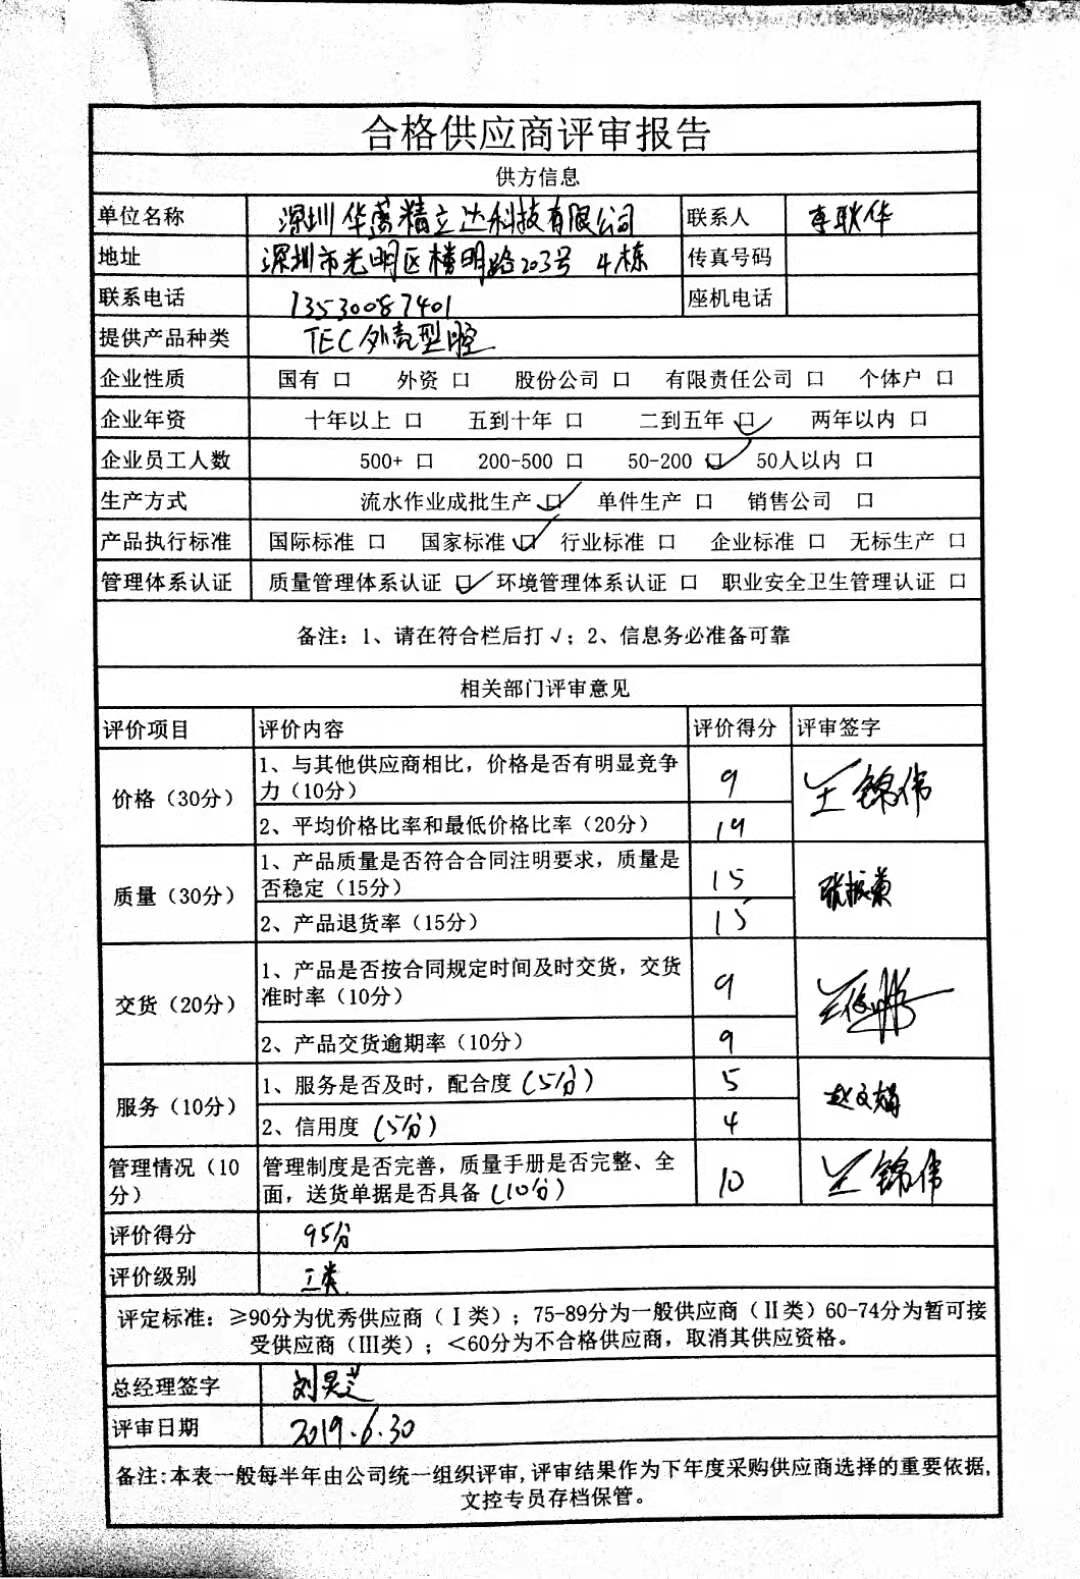 合格供应商评审报告
供方信息
单位名称 深圳华夢精立达科技有限公司 联系人 李耿华
地址 深圳市光明区楼明路203号 4栋 传真号码
联系电话 13530087401 座机电话
提供产品种类 TEC外壳型腔
企业性质 国有 口 外资 口 股份公司 口 有限责任公司 口 个体户 口
企业年资 十年以上 口 五到十年 口 二到五年 口✓ 两年以内 口
企业员工人数 500+ 口 200-500 口 50-200 口✓ 50人以内 口
生产方式 流水作业成批生产 口✓ 单件生产 口 销售公司 口
产品执行标准 国际标准 口 国家标准 口✓ 行业标准 口 企业标准 口 无标生产 口
管理体系认证 质量管理体系认证 口✓ 环境管理体系认证 口 职业安全卫生管理认证 口
备注：1、请在符合栏后打√；2、信息务必准备可靠
相关部门评审意见
评价项目 评价内容 评价得分 评审签字
价格（30分） 1、与其他供应商相比，价格是否有明显竞争
力（10分） 9 王锦伟
2、平均价格比率和最低价格比率（20分） 19
质量（30分） 1、产品质量是否符合合同注明要求，质量是
否稳定（15分） 15 张振
2、产品退货率（15分） 15
交货（20分） 1、产品是否按合同规定时间及时交货，交货
准时率（10分） 9
2、产品交货逾期率（10分） 9
服务（10分） 1、服务是否及时，配合度（5分） 5 赵文
2、信用度（5分） 4
管理情况（10
分） 管理制度是否完善，质量手册是否完整、全
面，送货单据是否具备（10分） 10 王锦伟
评价得分 95分
评价级别 I类
评定标准：≥90分为优秀供应商（Ⅰ类）；75-89分为一般供应商（Ⅱ类）60-74分为暂可接
受供应商（Ⅲ类）；<60分为不合格供应商，取消其供应资格。
总经理签字 刘昊芝
评审日期 2019.6.30
备注:本表一般每半年由公司统一组织评审,评审结果作为下年度采购供应商选择的重要依据,
文控专员存档保管。